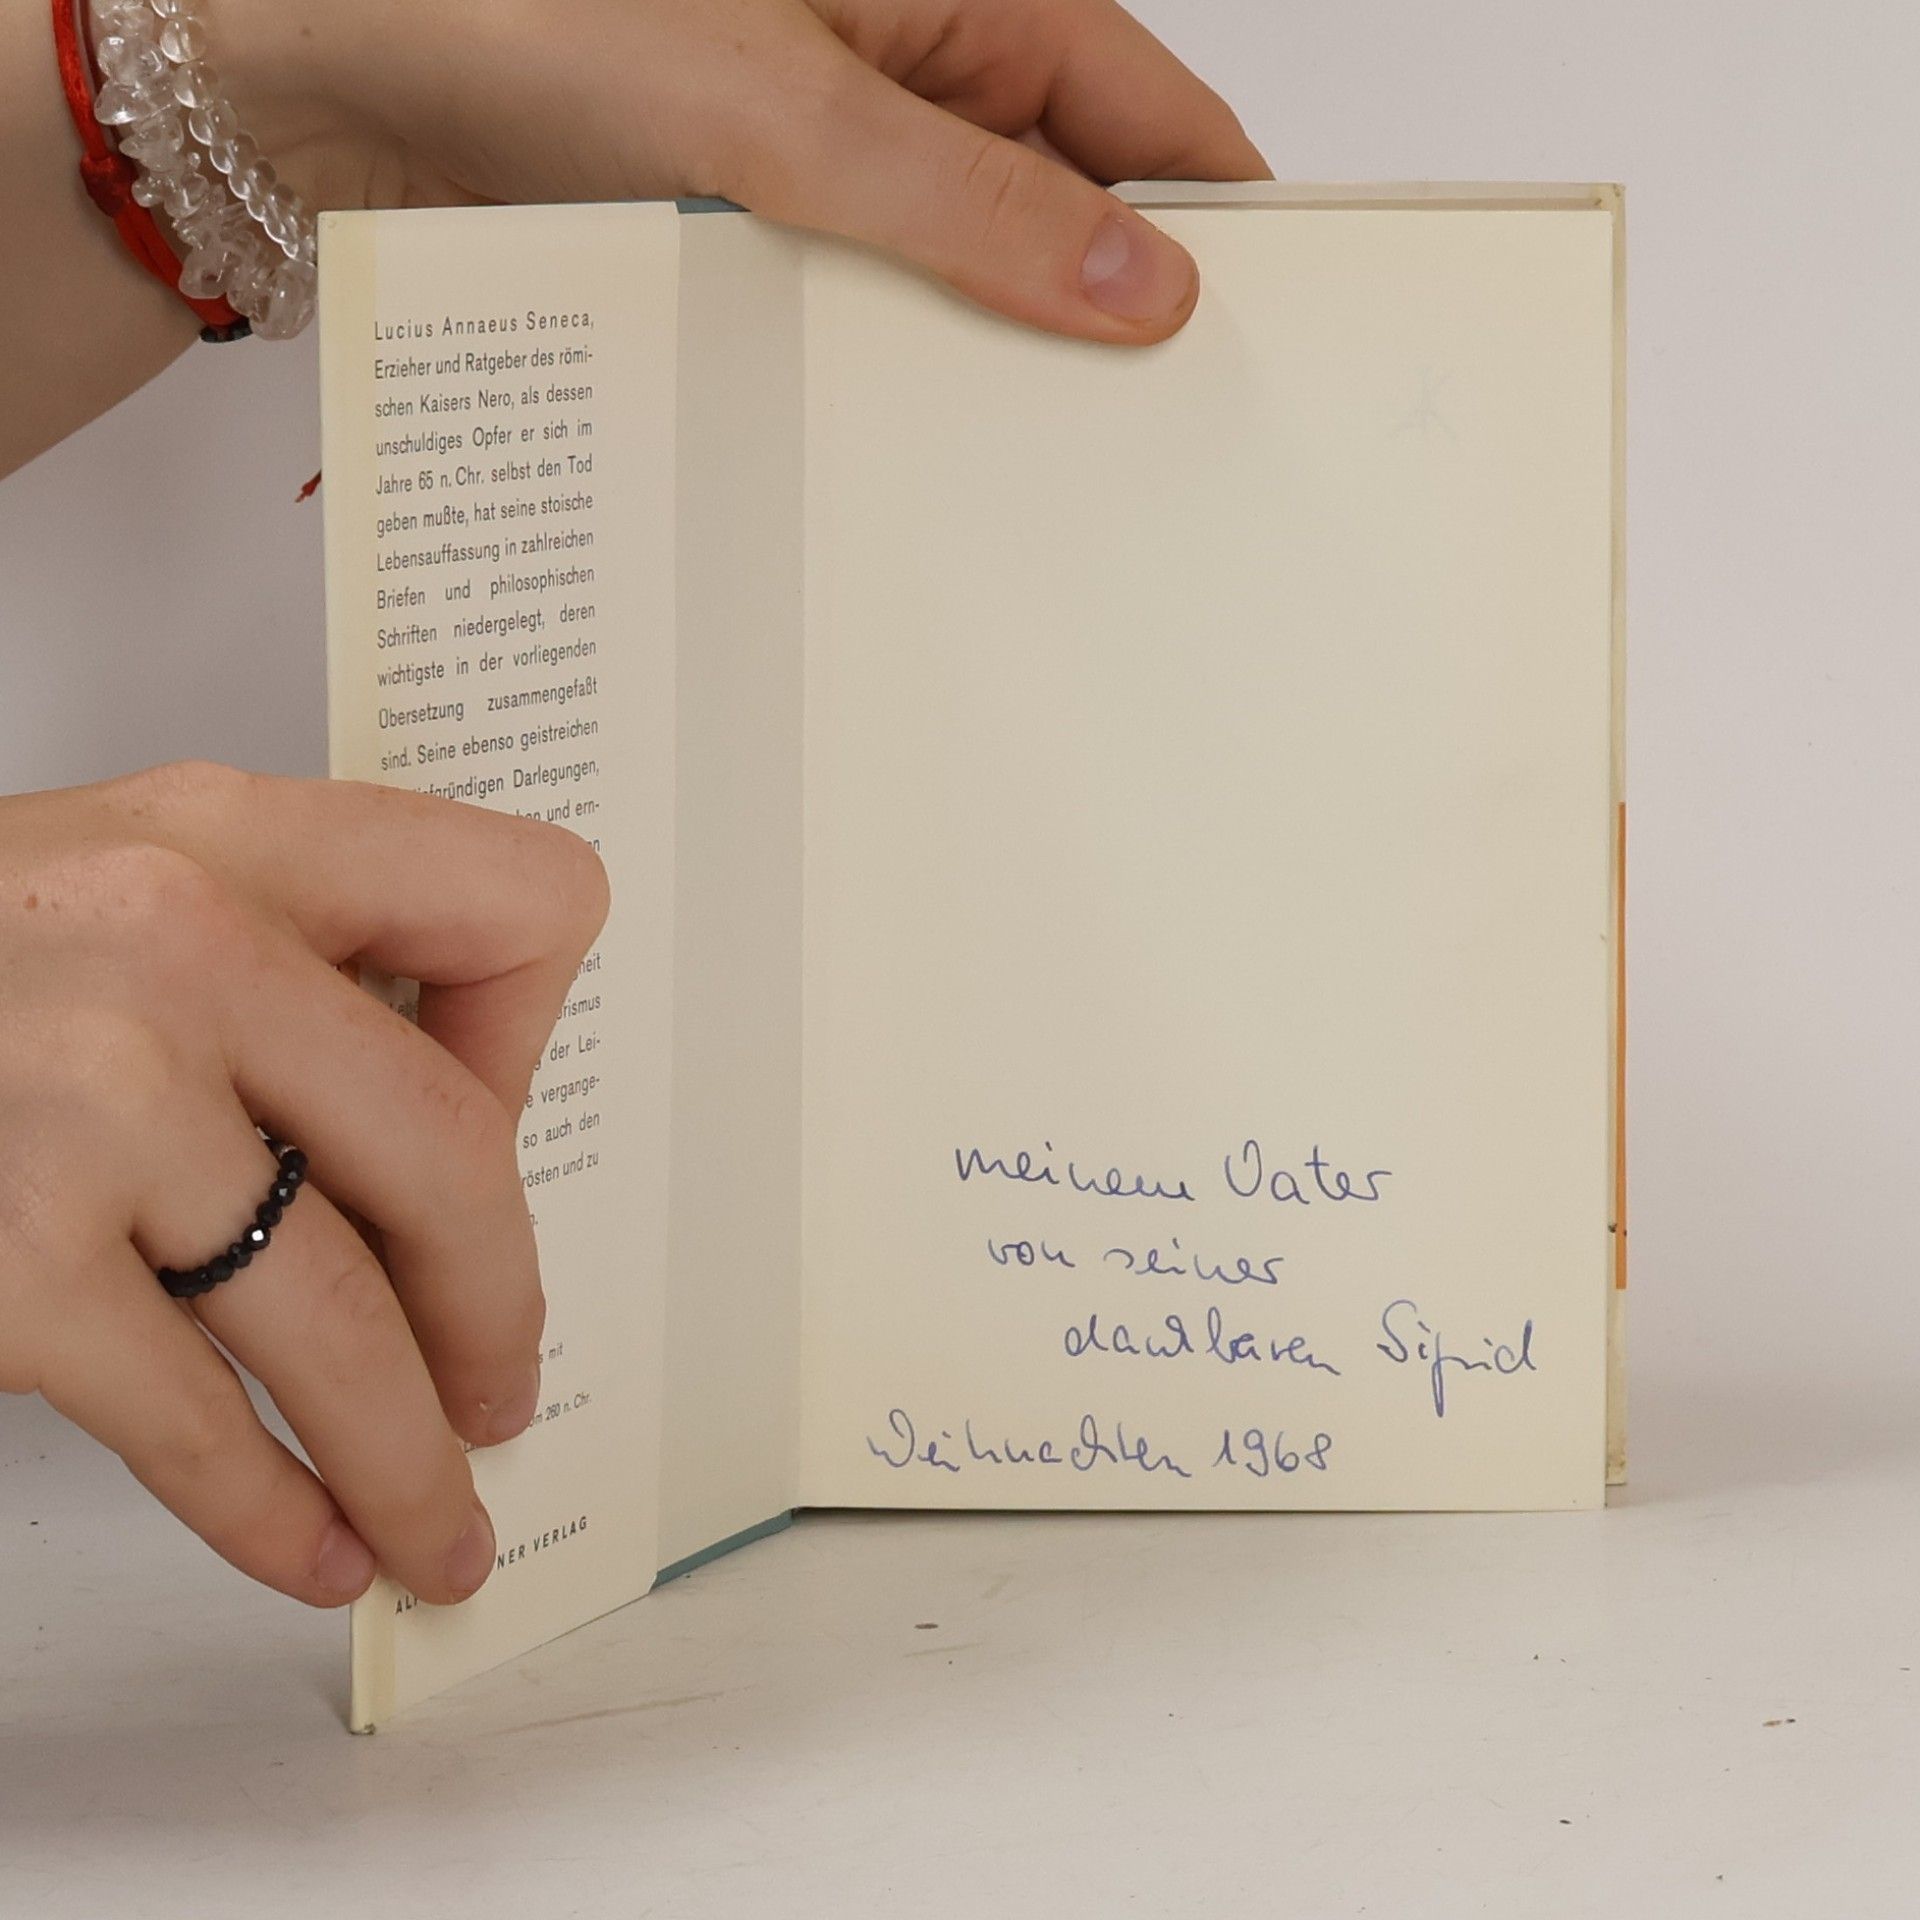 Lucius Annaeus Seneca,
Erzieher und Ratgeber des römi-
schen Kaisers Nero, als dessen
unschuldiges Opfer er sich im
Jahre 65 n. Chr. selbst den Tod
geben mußte, hat seine stoische
Lebensauffassung in zahlreichen
Briefen und philosophischen
Schriften niedergelegt, deren
wichtigste in der vorliegenden
Übersetzung zusammengefaßt
sind. Seine ebenso geistreichen
Darlegungen,
und ern-
der Lei-
vergange-
so auch den
und zu
mit
260 n. Chr.
VERLAG
meinem Vater
von seiner
dankbaren Sigrid
Weihnachten 1968